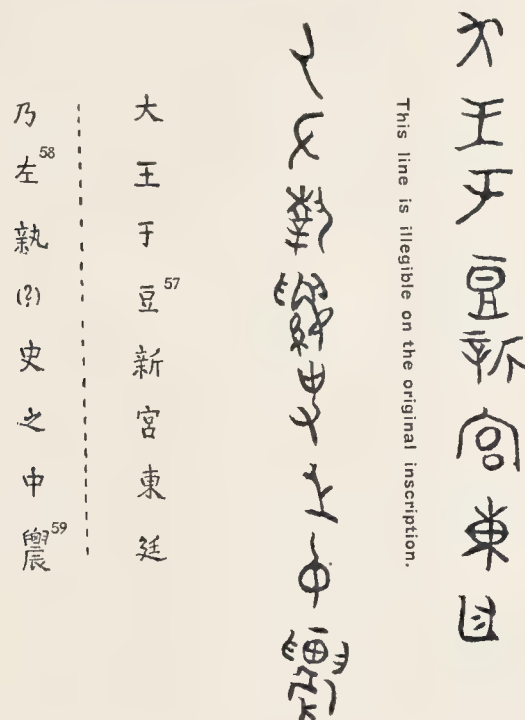 大王于豆新宮東廷
This line is illegible on the original inscription.
乃左執史之中
大王于豆57新宮東廷
乃左58執(?)史之中59